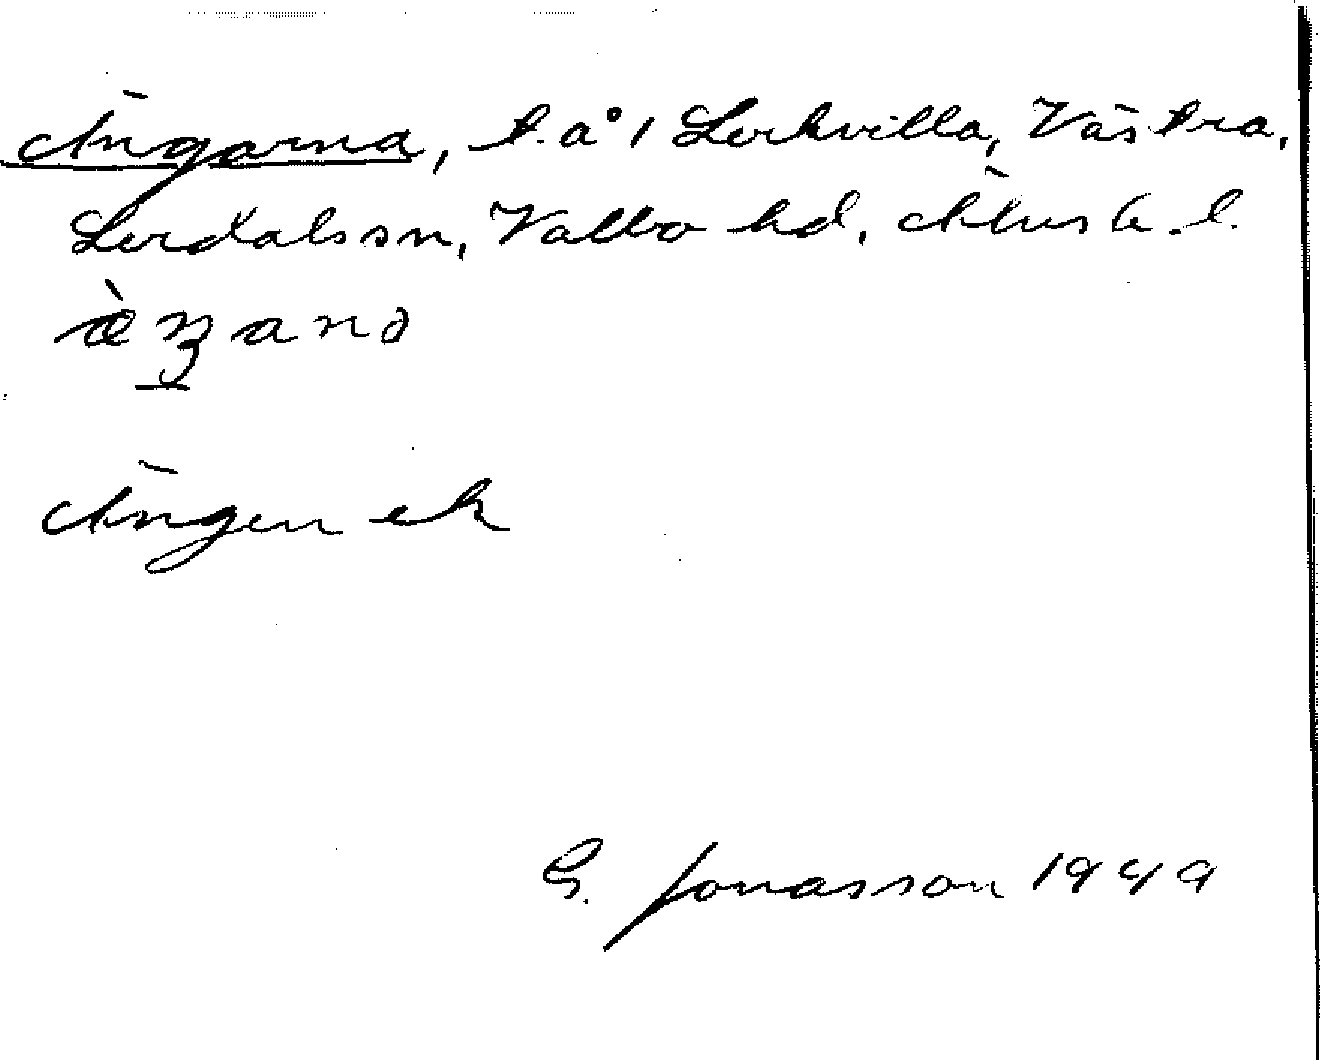 Ängarna, t.å 1 Lerkvilla, Västra,
Lerdals sn, Valbo hd, Älvsb. l.
æ̀ŋano
Ängen ek
G. Jonasson 1949